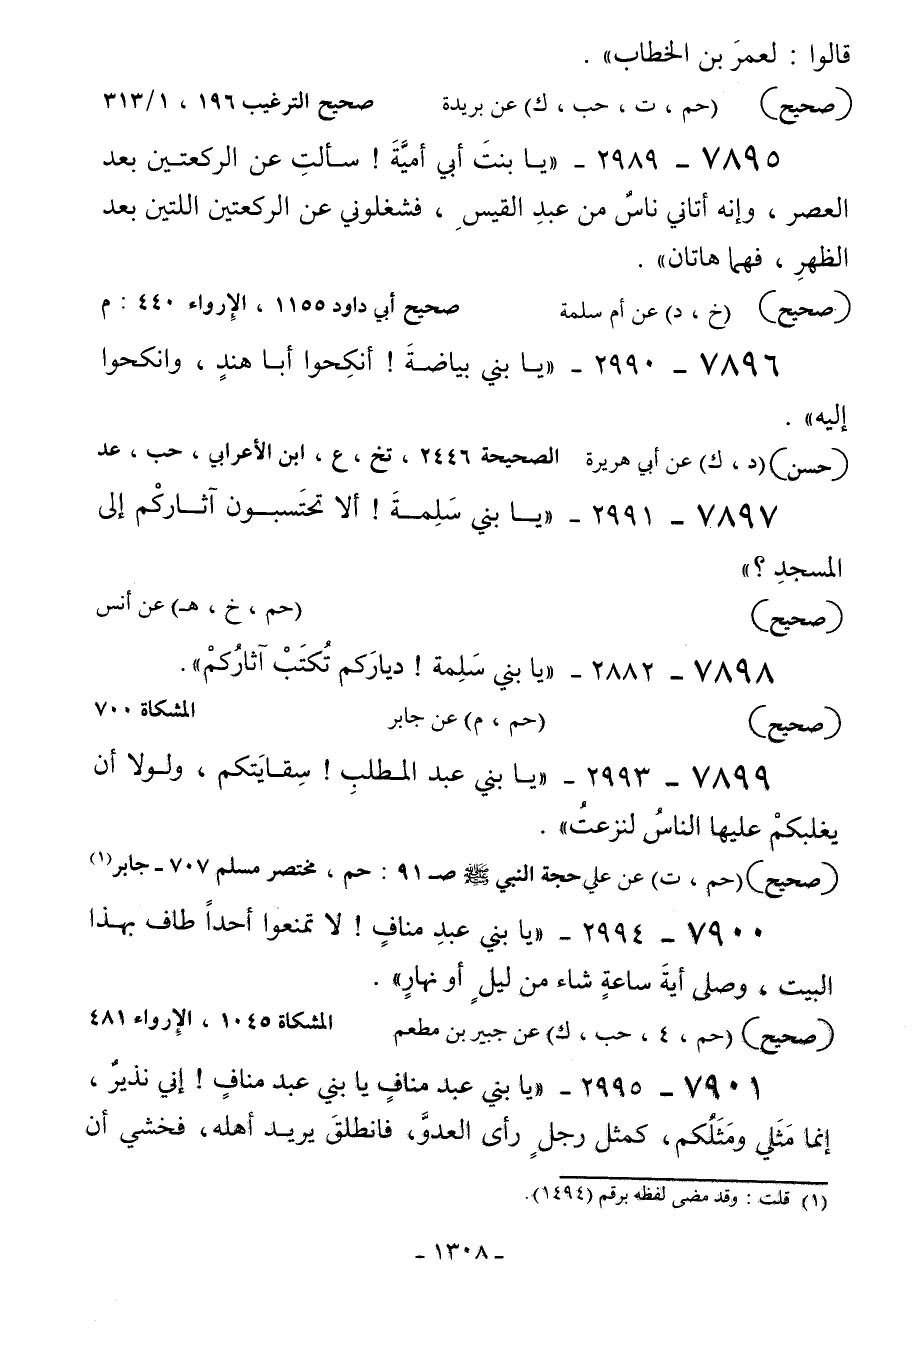 قالوا : لعمرَ بن الخطاب» .
(صحيح) (حم ، ت ، حب ، ك) عن بريدة صحيح الترغيب ١٩٦ ، ٣١٣/١
٧٨٩٥ ـ ٢٩٨٩ ـ «يـا بنتَ أبي أميَّةَ ! سـألتِ عن الركعتـين بعد
العصر ، وإنه أتاني ناسٌ من عبدِ القيسِ ، فشغلوني عن الركعتين اللتين بعد
الظهرِ ، فهما هاتان» .
(صحيح) (خ ، د) عن أم سلمة صحيح أبي داود ١١٥٥ ، الإرواء ٤٤٠ : م
٧٨٩٦ ـ ٢٩٩٠ ـ «يـا بني بياضـةَ ! أنكِحوا أبـا هندٍ ، وانكحوا
إليه» .
(حسن) (د ، ك) عن أبي هريرة الصحيحة ٢٤٤٦ ، تخ ، ع ، ابن الأعرابي ، حب ، عد
٧٨٩٧ ـ ٢٩٩١ ـ «يـــا بني سَلِمـــةَ ! ألا تحتَسبـــون آثـــاركْم إلى
المسجدِ ؟»
(صحيح) (حم ، خ ، هـ) عن أنس
٧٨٩٨ ـ ٢٨٨٢ ـ «يا بني سَلِمة ! ديارَكم تُكتَبْ آثارُكمْ».
(صحيح) (حم ، م) عن جابر المشكاة ٧٠٠
٧٨٩٩ ـ ٢٩٩٣ ـ «يـا بني عبد المـطلبِ ! سِقـايَتكم ، ولـولا أن
يغلبكمْ عليها الناسُ لنزعتُ» .
(صحيح) (حم ، ت) عن علي حجة النبي ﷺ صـ ٩١ : حم ، مختصر مسلم ٧٠٧ ـ جابر(١)
٧٩٠٠ ـ ٢٩٩٤ ـ «يا بني عبدِ منافٍ ! لا تمنعوا أحداً طاف بهـذا
البيت ، وصلى أيةَ ساعةٍ شاء من ليلٍ أو نهارٍ» .
(صحيح) (حم ، ٤ ، حب ، ك) عن جبير بن مطعم المشكاة ١٠٤٥ ، الإرواء ٤٨١
٧٩٠١ ـ ٢٩٩٥ ـ «يا بني عبد منافٍ يا بني عبد منافٍ ! إني نذيرٌ ،
إنما مَثَلي ومَثَلُكم، كمثل رجلٍ رأى العدوَّ، فانطلقَ يريـد أهله، فخشي أن
(١) قلت : وقد مضى لفظه برقم (١٤٩٤).
ـ ١٣٠٨ ـ